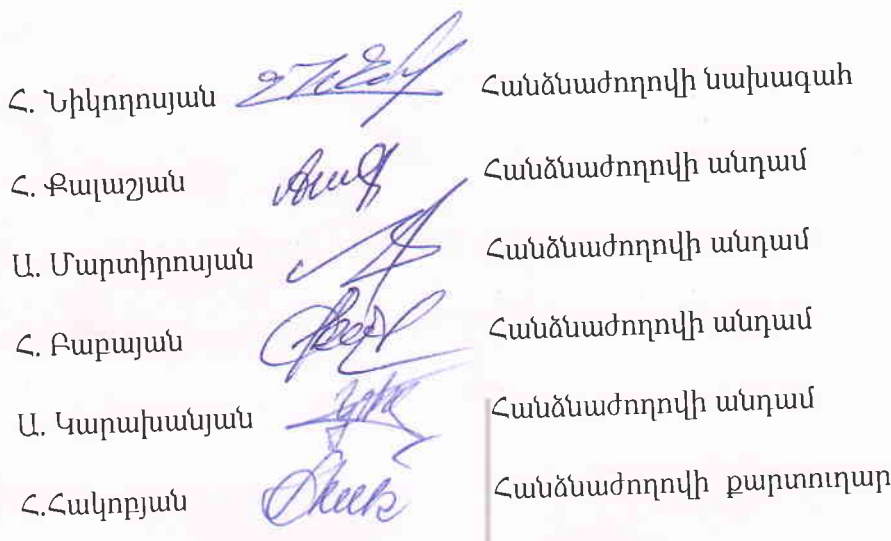 Հ. Նիկողոսյան Հանձնաժողովի նախագահ
Հ. Քալաշյան Հանձնաժողովի անդամ
Ա. Մարտիրոսյան Հանձնաժողովի անդամ
Հ. Բաբայան Հանձնաժողովի անդամ
Ա. Կարախանյան Հանձնաժողովի անդամ
Հ.Հակոբյան Հանձնաժողովի քարտուղար